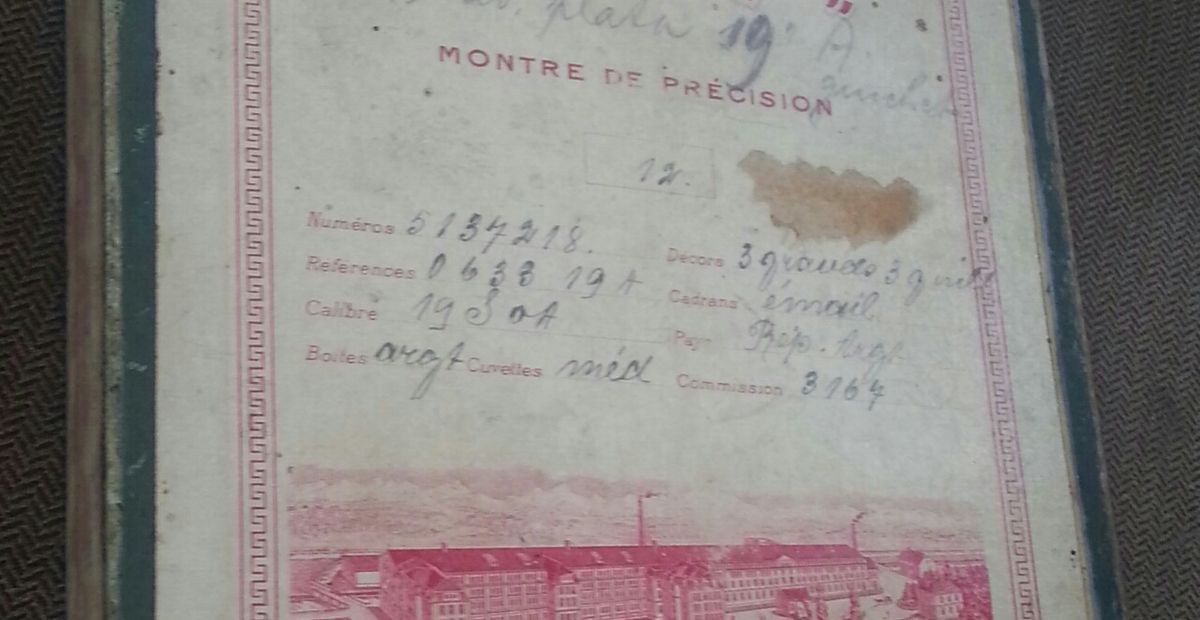 plata 19‴ A.
MONTRE DE PRÉCISION
12.
Numéros 5137218.
References 0633 19 A
Calibre 19
Boites argt Cuvettes méd
Décors 3 grands 3
Cadrans émail
Pays Rép. Arg
Commission 3164